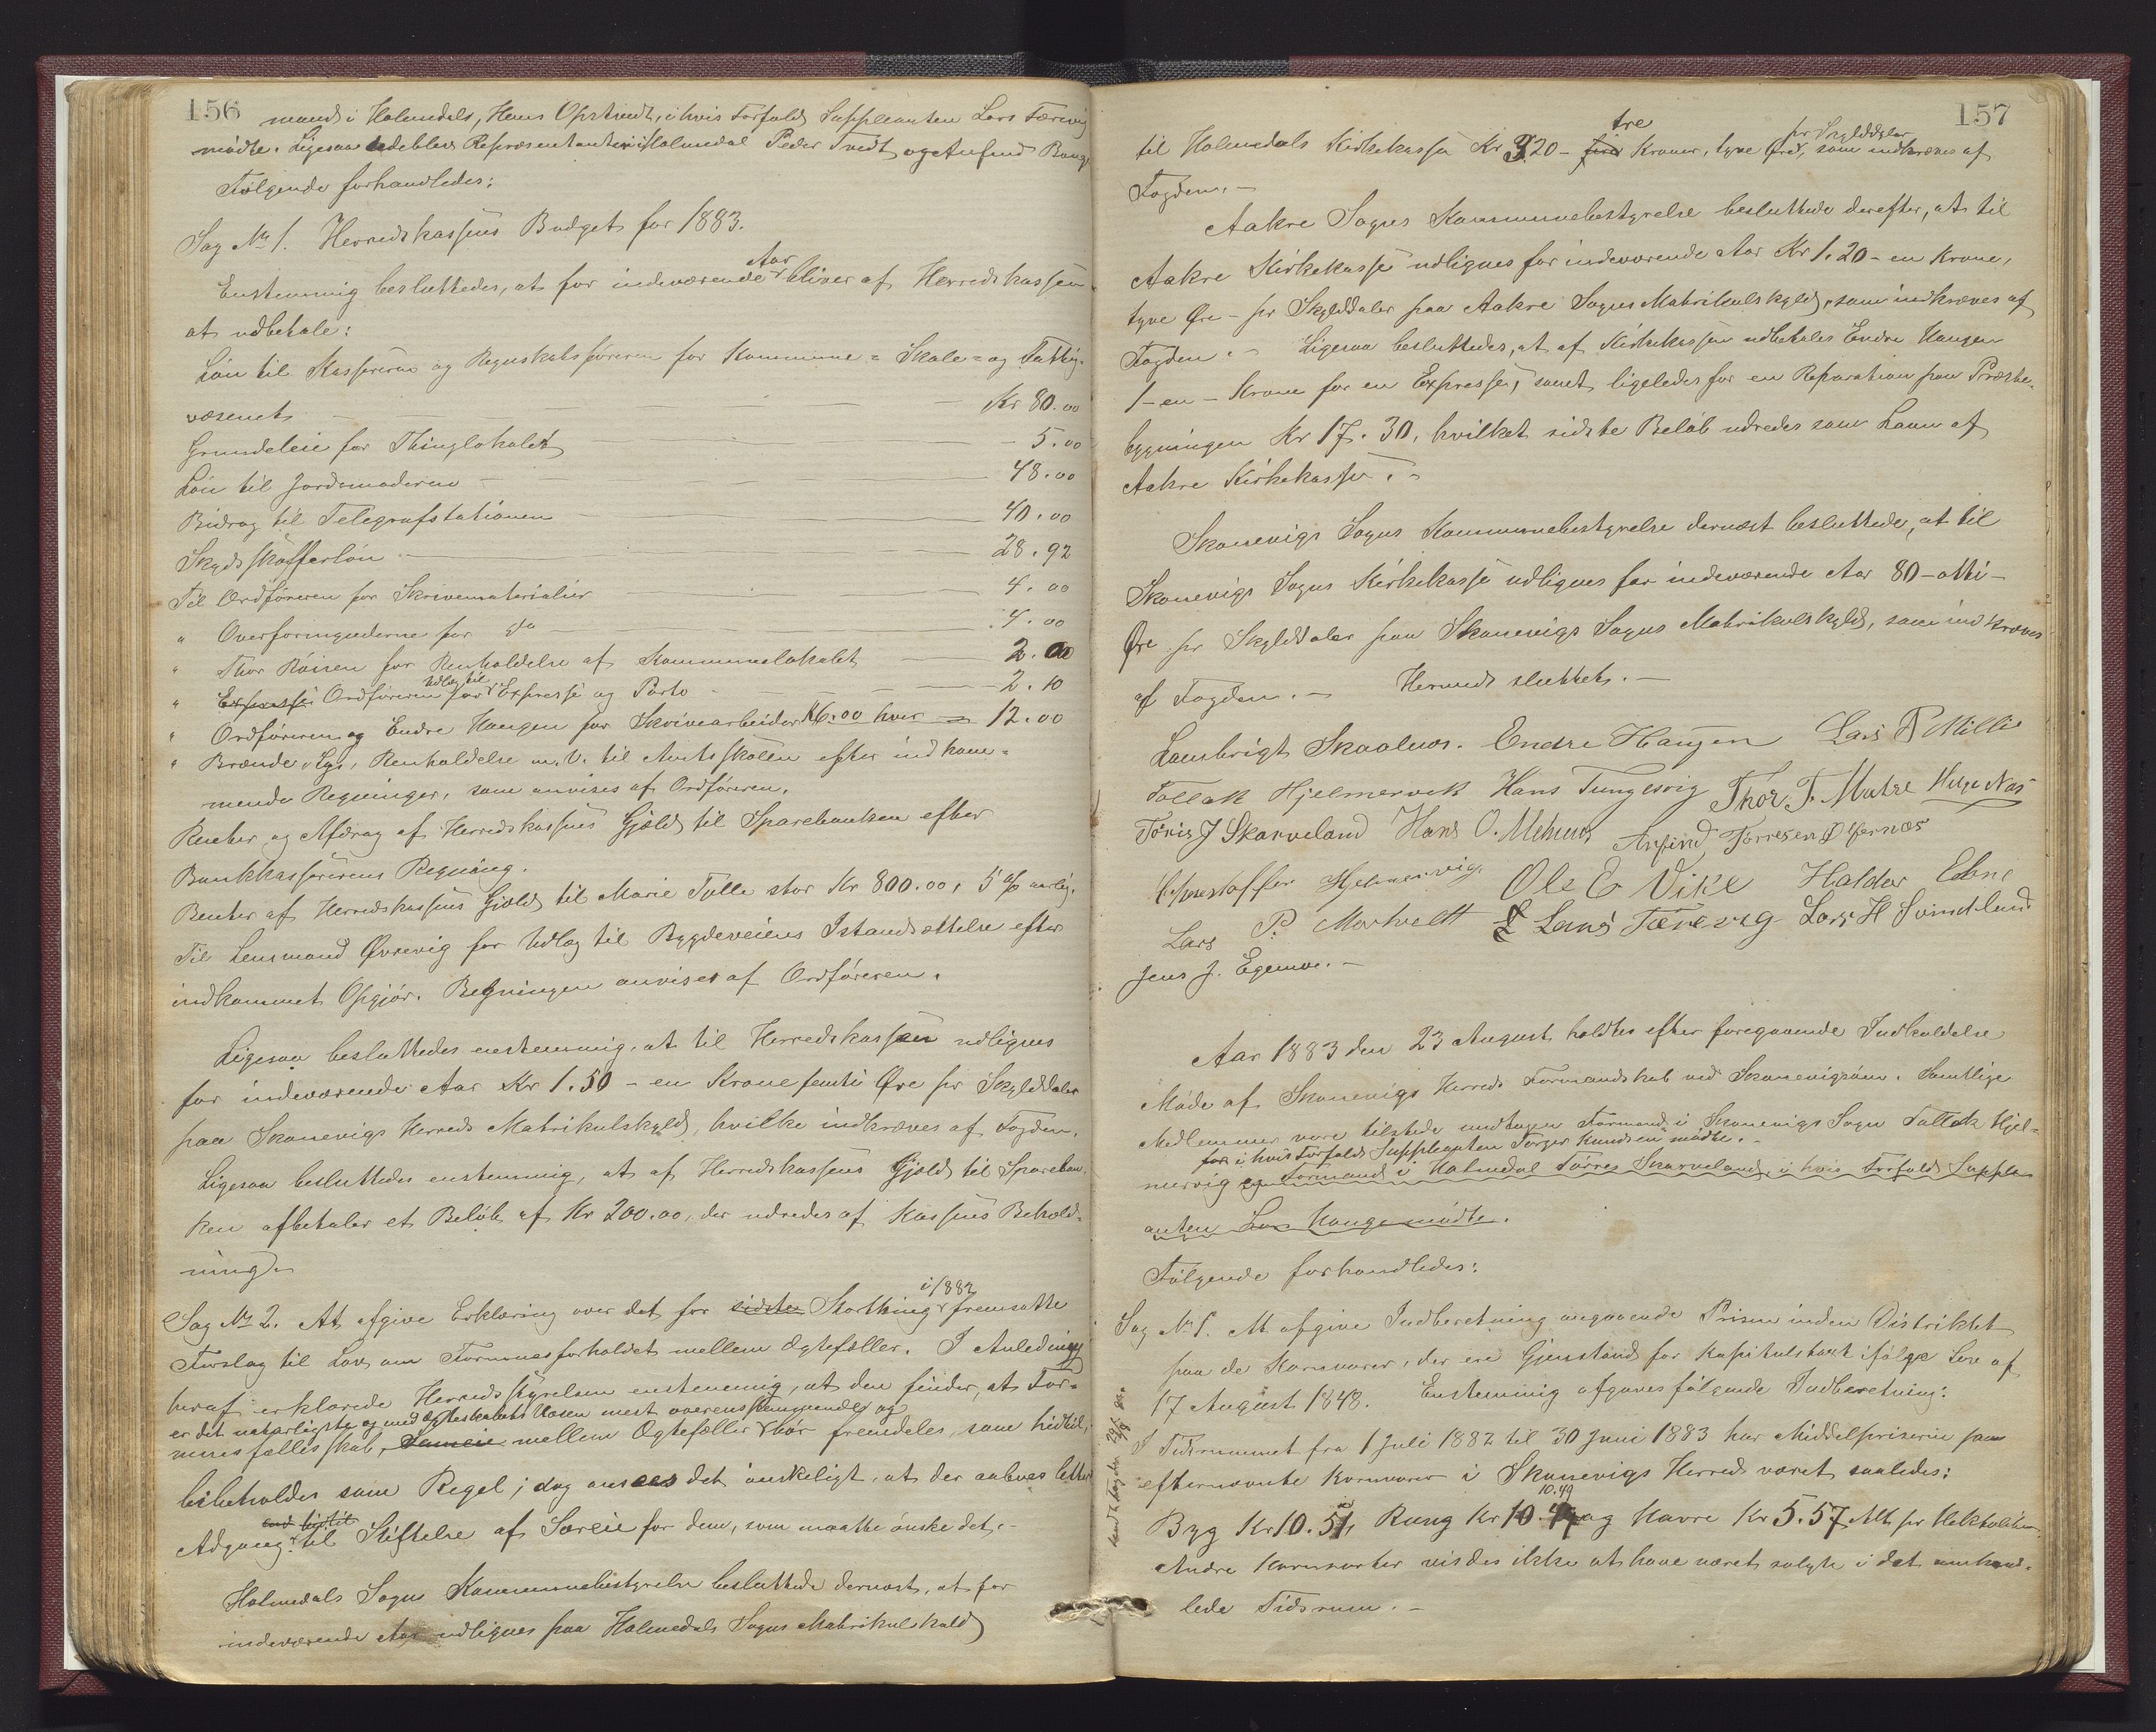 156
mand i Holmedal, Hans Opstvedt, i hvis Forfald Suppleanten Lars Tærevig
mødte. Ligesaa udeblev Repræsentanterne i Holmedal Peder Tvedt og Anfind Bauge
Følgende forhandledes:
Sag No 1. Herredskassens Budget for 1883.
Aar
Enstemmig besluttedes, at for indeværende bliver af Herredskassen
at udbetale:
Løn til Kassereren og Regnskabsføreren for Kommune= Skole= og Fattig-
væsenet — Kr 80.00
Grundeleie for Thinglokalet — 5.00
Løn til Jordemoderen — 48.00
Bidrag til Telegrafstationen — 40.00
Skydsskafferløn — 28.92
Til Ordføreren for Skrivematerialier — 4.00
" Overformynderne for do — 4.00
" Thor Røisen for Renholdelse af Kommunelokalet — 2.00
Udlæg til
" Expresse Ordføreren for Expresse og Porto — 2.10
" Ordføreren og Endre Haugen for Skrivearbeider Kr 6.00 hver — 12.00
" Brænde, Lys, Renholdelse m.V. til Amtsskolen efter indkom-
mende Regninger, som anvises af Ordføreren.
Renter og Afdrag af Herredskassens Gjæld til Sparebanken efter
Bankkassererens Regning.
Renter af Herredskassens Gjæld til Marie Tylle stor Kr 800.00, 5 % aarlig.
Til Lensmand Øvrevig for Udlæg til Bygdeveiens Istandsættelse efter
indkommet Opgjør. Regningen anvises af Ordføreren.
Ligesaa besluttedes enstemmig, at til Herredskassen udlignes
for indeværende Aar Kr 1.50 – en Krone femti Øre pr Skylddaler
paa Skonevigs Herreds Matrikulskyld, hvilke indkræves af Fogden.
Ligesaa besluttedes enstemmig, at af Herredskassens Gjæld til Spareban
ken afbetales et Beløb af Kr 200.00, der udredes af Kassens Behold-
ning.
i 1882
Sag No 2. At afgive Erklæring over det for sidste Storthing fremsatte
Forslag til Lov om Formuesforholdet mellem Ægtefæller. I Anledning
heraf erklærede Herredsstyrelsen enstemmig, at den finder, at For-
er det naturligste og med Ægteskabets Væsen mest overensstemmende og
muesfællesskab, Sameie mellem Ægtefæller bør fremdeles, som hidtil,
bibeholdes som Regel; dog ansees det ønskeligt, at der aabnes lettere
end hidtil
Adgang til Stiftelse af Særeie for dem, som maatte ønske det.–
Holmedals Sogns Kommunebestyrelse besluttede dernæst, at for
indeværende Aar udlignes paa Holmedals Sogns Matrikulskyld
157
tre pr Skylddaler
til Holmedals Kirkekasse Kr 3.20 – fire Kroner, tyve Øre, som indkræves af
Fogden.–
Aakre Sogns Kommunebestyrelse besluttede derefter, at til
Aakre Kirkekasse udlignes for indeværende Aar Kr 1.20 – en Krone,
tyve Øre – pr Skylddaler paa Aakre Sogns Matrikulskyld, som indkræves af
Fogden.– Ligesaa besluttedes, at af Kirkekassen udbetales Endre Haugen
1 – en – Krone for en Expresse, samt ligeledes for en Reparation paa Præste-
bygningen Kr 17.30, hvilket sidste Beløb udredes som Laan af
Aakre Kirkekasse.–
Skonevigs Sogns Kommunebestyrelse dernæst besluttede, at til
Skonevigs Sogns Kirkekasse udlignes for indeværende Aar 80 – otti –
Øre pr Skylddaler paa Skonevigs Sogns Matrikulskyld, som indkræves
af Fogden.– Hermed sluttet.–
Lambrigt Skaalnes. Endre Haugen Lars T Millie
Tollak Hjelmervik Hans Tungesvig Thor T. Matre Helge Næs
Tøris J Skarveland Hans O. Mehus Anfind Torresen Ølfernæs
Christoffer Hjelmervig Ole E Vike Haldor Ebne
Lars P. Mortvedt Lars Tærevig Lars H Svindland
Jens J. Egemoe.–
Aar 1883 den 23 August holdtes efter foregaaende Indkaldelse
Møde af Skonevigs Herreds Formandskab ved Skonevigsøen. Samtlige
Medlemmer vare tilstede undtagen Formand i Skonevigs Sogn Tollak Hjel-
for i hvis Forfald Suppleanten Torger Knudsen mødte.–
mervig og Formand i Holmedal Tørres Skarveland, i hvis Forfald Supple
anten Lars Hauge mødte.
Følgende forhandledes:
Sag No 1. At afgive Indberetning angaaende Prisen inden Distriktet
paa de Kornvarer, der ere Gjenstand for Kapitulstaxt ifølge Lov af
17 August 1848. Enstemmig afgaves følgende Indberetning:
I Tidsrummet fra 1 Juli 1882 til 30 Juni 1883 har Middelpriserne paa
efternævnte Kornvarer i Skonevigs Herred været saaledes:
10.49
Byg Kr 10.51, Rung Kr 10.49 og Havre Kr 5.57 Alt pr Hektoliter.
Andre Kornsorter vides ikke at have været solgte i det omhand-
lede Tidsrum.–